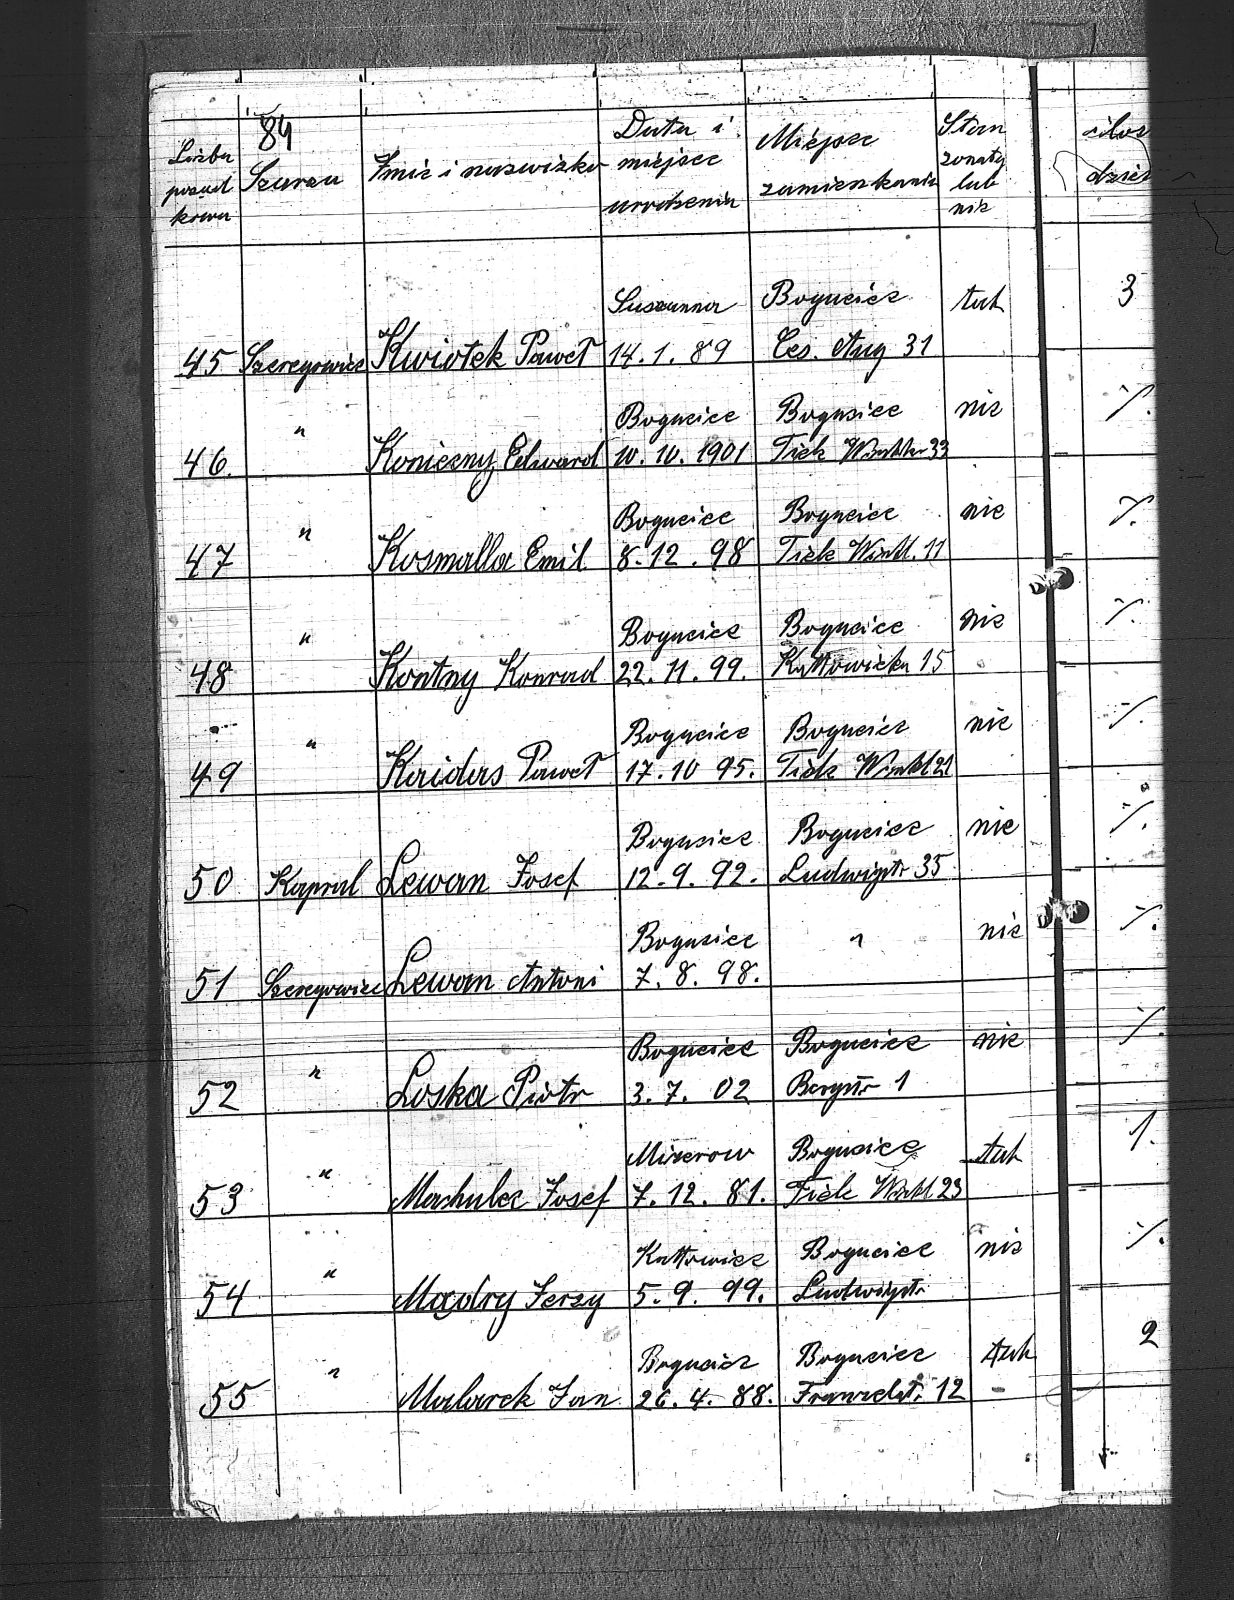 84
Liczba porząd kowa | Szarza | Imie i nazwizko | Data i miejsce urodzenia | Miejsce zamieszkania | Stan zonaty lub nie | ilosc dzieci
Suszanna | Bogucice | tak | 3
45 | Szeregowiec | Kwiotek Paweł | 14.1.89 | Ces. Aug 31
" | Bogucice | Bogucice | nie | %.
46. | Konieczny Edward | 10.10.1901 | Tiele Winkler 33
" | Bogucice | Bogucice | nie | %.
47 | Kosmalla Emil | 8.12.98 | Tiele Winkl. 11
" | Bogucice | Bogucice | nie | %.
48 | Kontny Konrad | 22.11.99. | Kattowicka 15
" | Bogucice | Bogucice | nie | %.
49 | Kaidas Paweł | 17.10 95. | Tiele Winkl 21
Bogucice | Bogucice | nie | %.
50 | Kapral | Lewan Josef | 12.9.92. | Ludwigstr 35
Bogucice | " | nie | %.
51 | Szeregowiec | Lewan Antoni | 7.8.98.
" | Bogucice | Bogucice | nie | %.
52 | Loska Piotr | 3.7.02 | Bergstr 1
" | Mizerow | Bogucice | tak | 1.
53 | Mashulec Josef | 7.12.81. | Tiele Winkl 23
" | Kattowice | Bogucice | nie | %.
54 | Mądry Jerzy | 5.9.99. | Ludwigstr
" | Bogucice | Bogucice | tak | 2
55 | Malarek Jan | 26.4.88. | 12 -